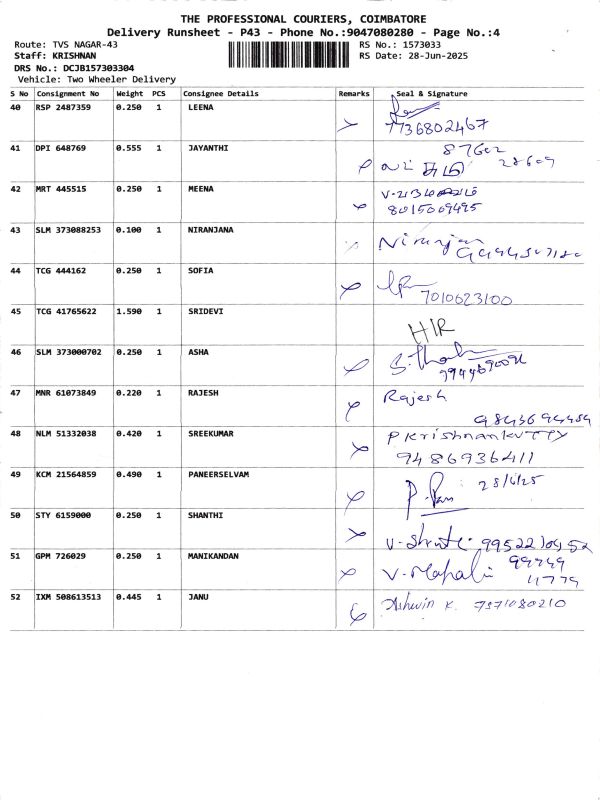 THE PROFESSIONAL COURIERS, COIMBATORE
Delivery Runsheet - P43 - Phone No.:9047080280 - Page No.:4
Route: TVS NAGAR-43
Staff: KRISHNAN
DRS No.: DCJB157303304
Vehicle: Two Wheeler Delivery
RS No.: 1573033
RS Date: 28-Jun-2025
S No Consignment No Weight PCS Consignee Details Remarks Seal & Signature
40 RSP 2487359 0.250 1 LEENA
7736802467
41 DPI 648769 0.555 1 JAYANTHI
42 MRT 445515 0.250 1 MEENA
8015009495
43 SLM 373088253 0.100 1 NIRANJANA
Niranjan
44 TCG 444162 0.250 1 SOFIA
7010623100
45 TCG 41765622 1.590 1 SRIDEVI
H/R
46 SLM 373000702 0.250 1 ASHA
47 MNR 61073849 0.220 1 RAJESH Rajesh
48 NLM 51332038 0.420 1 SREEKUMAR PKrishnankuTTY
9486936411
49 KCM 21564859 0.490 1 PANEERSELVAM 28/6/25
50 STY 6159000 0.250 1 SHANTHI
51 GPM 726029 0.250 1 MANIKANDAN
52 IXM 508613513 0.445 1 JANU Ashwin K.